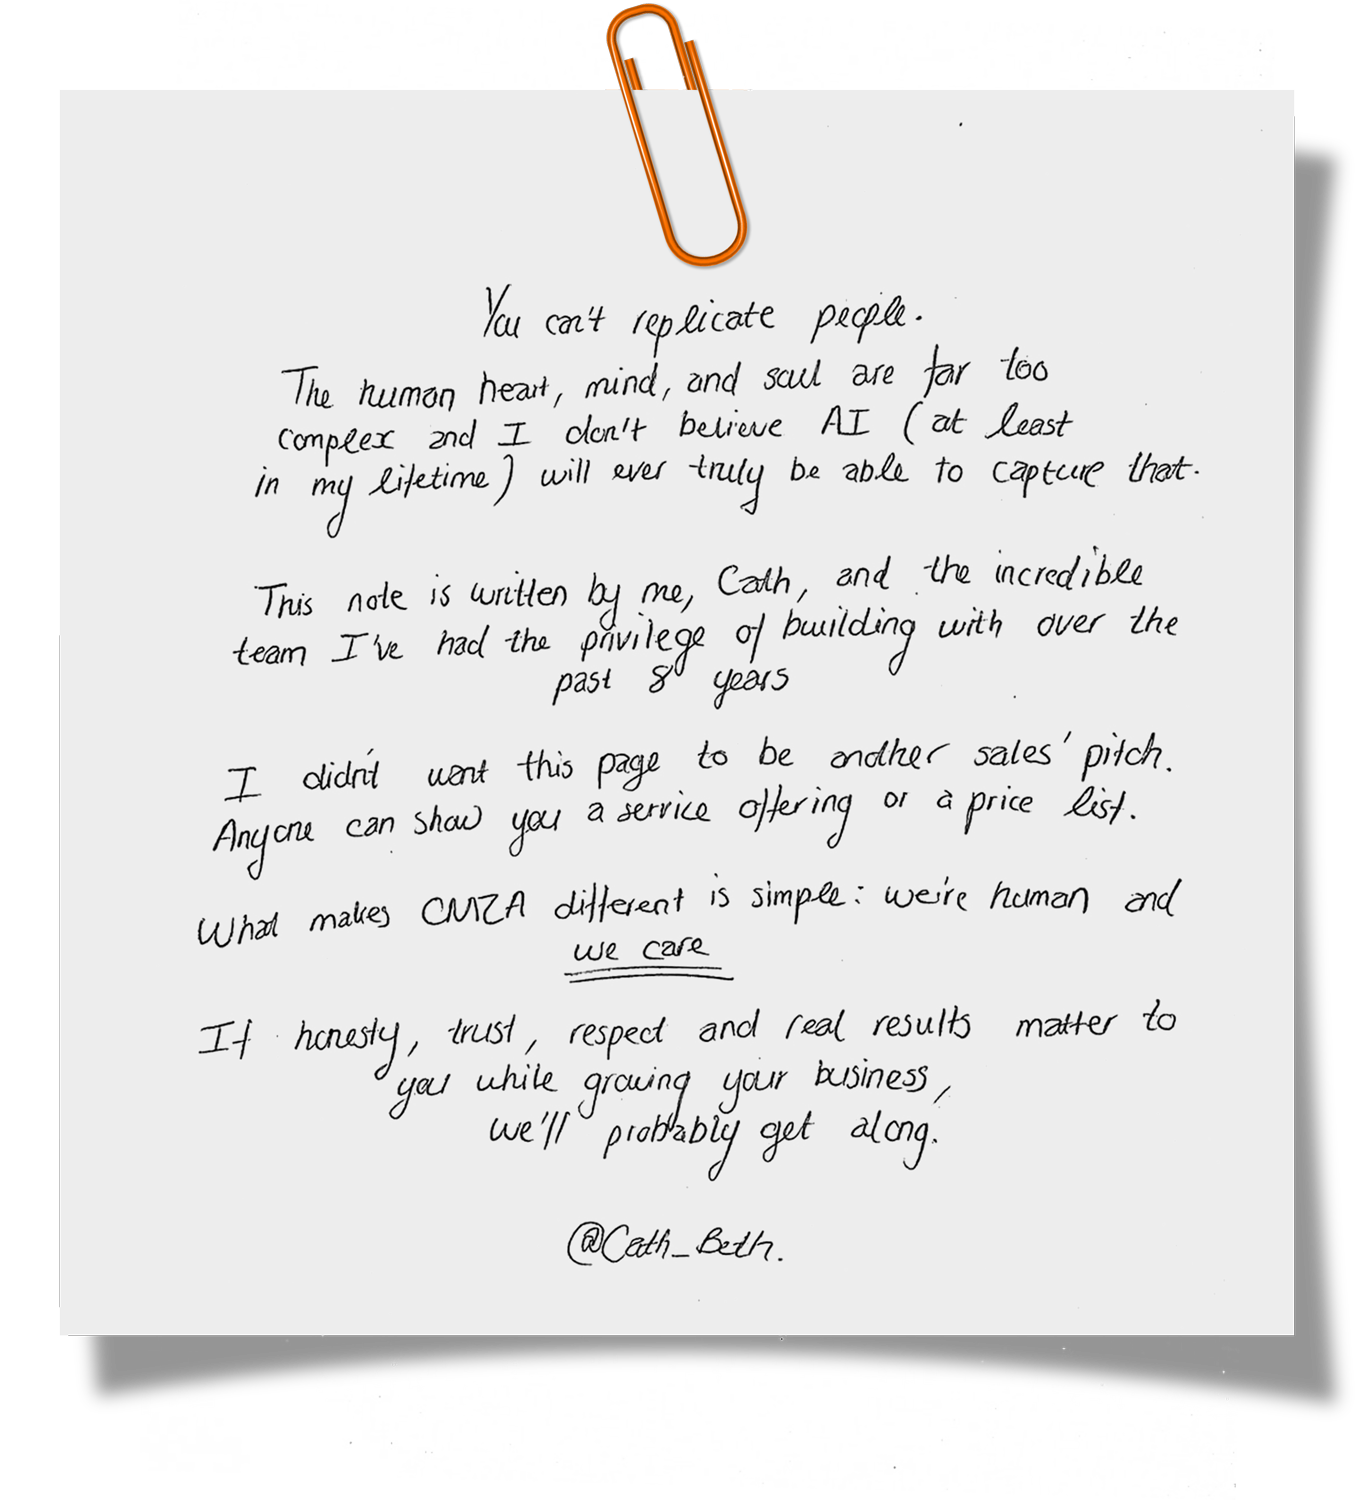 You can't replicate people.
The human heart, mind, and soul are far too
complex and I don't believe AI (at least
in my lifetime) will ever truly be able to capture that.
This note is written by me, Cath, and the incredible
team I've had the privilege of building with over the
past 8 years
I didn't want this page to be another sales' pitch.
Anyone can show you a service offering or a price list.
What makes CMZA different is simple: we're human and
we care
If honesty, trust, respect and real results matter to
you while growing your business,
we'll probably get along.
@Cath_Beth.